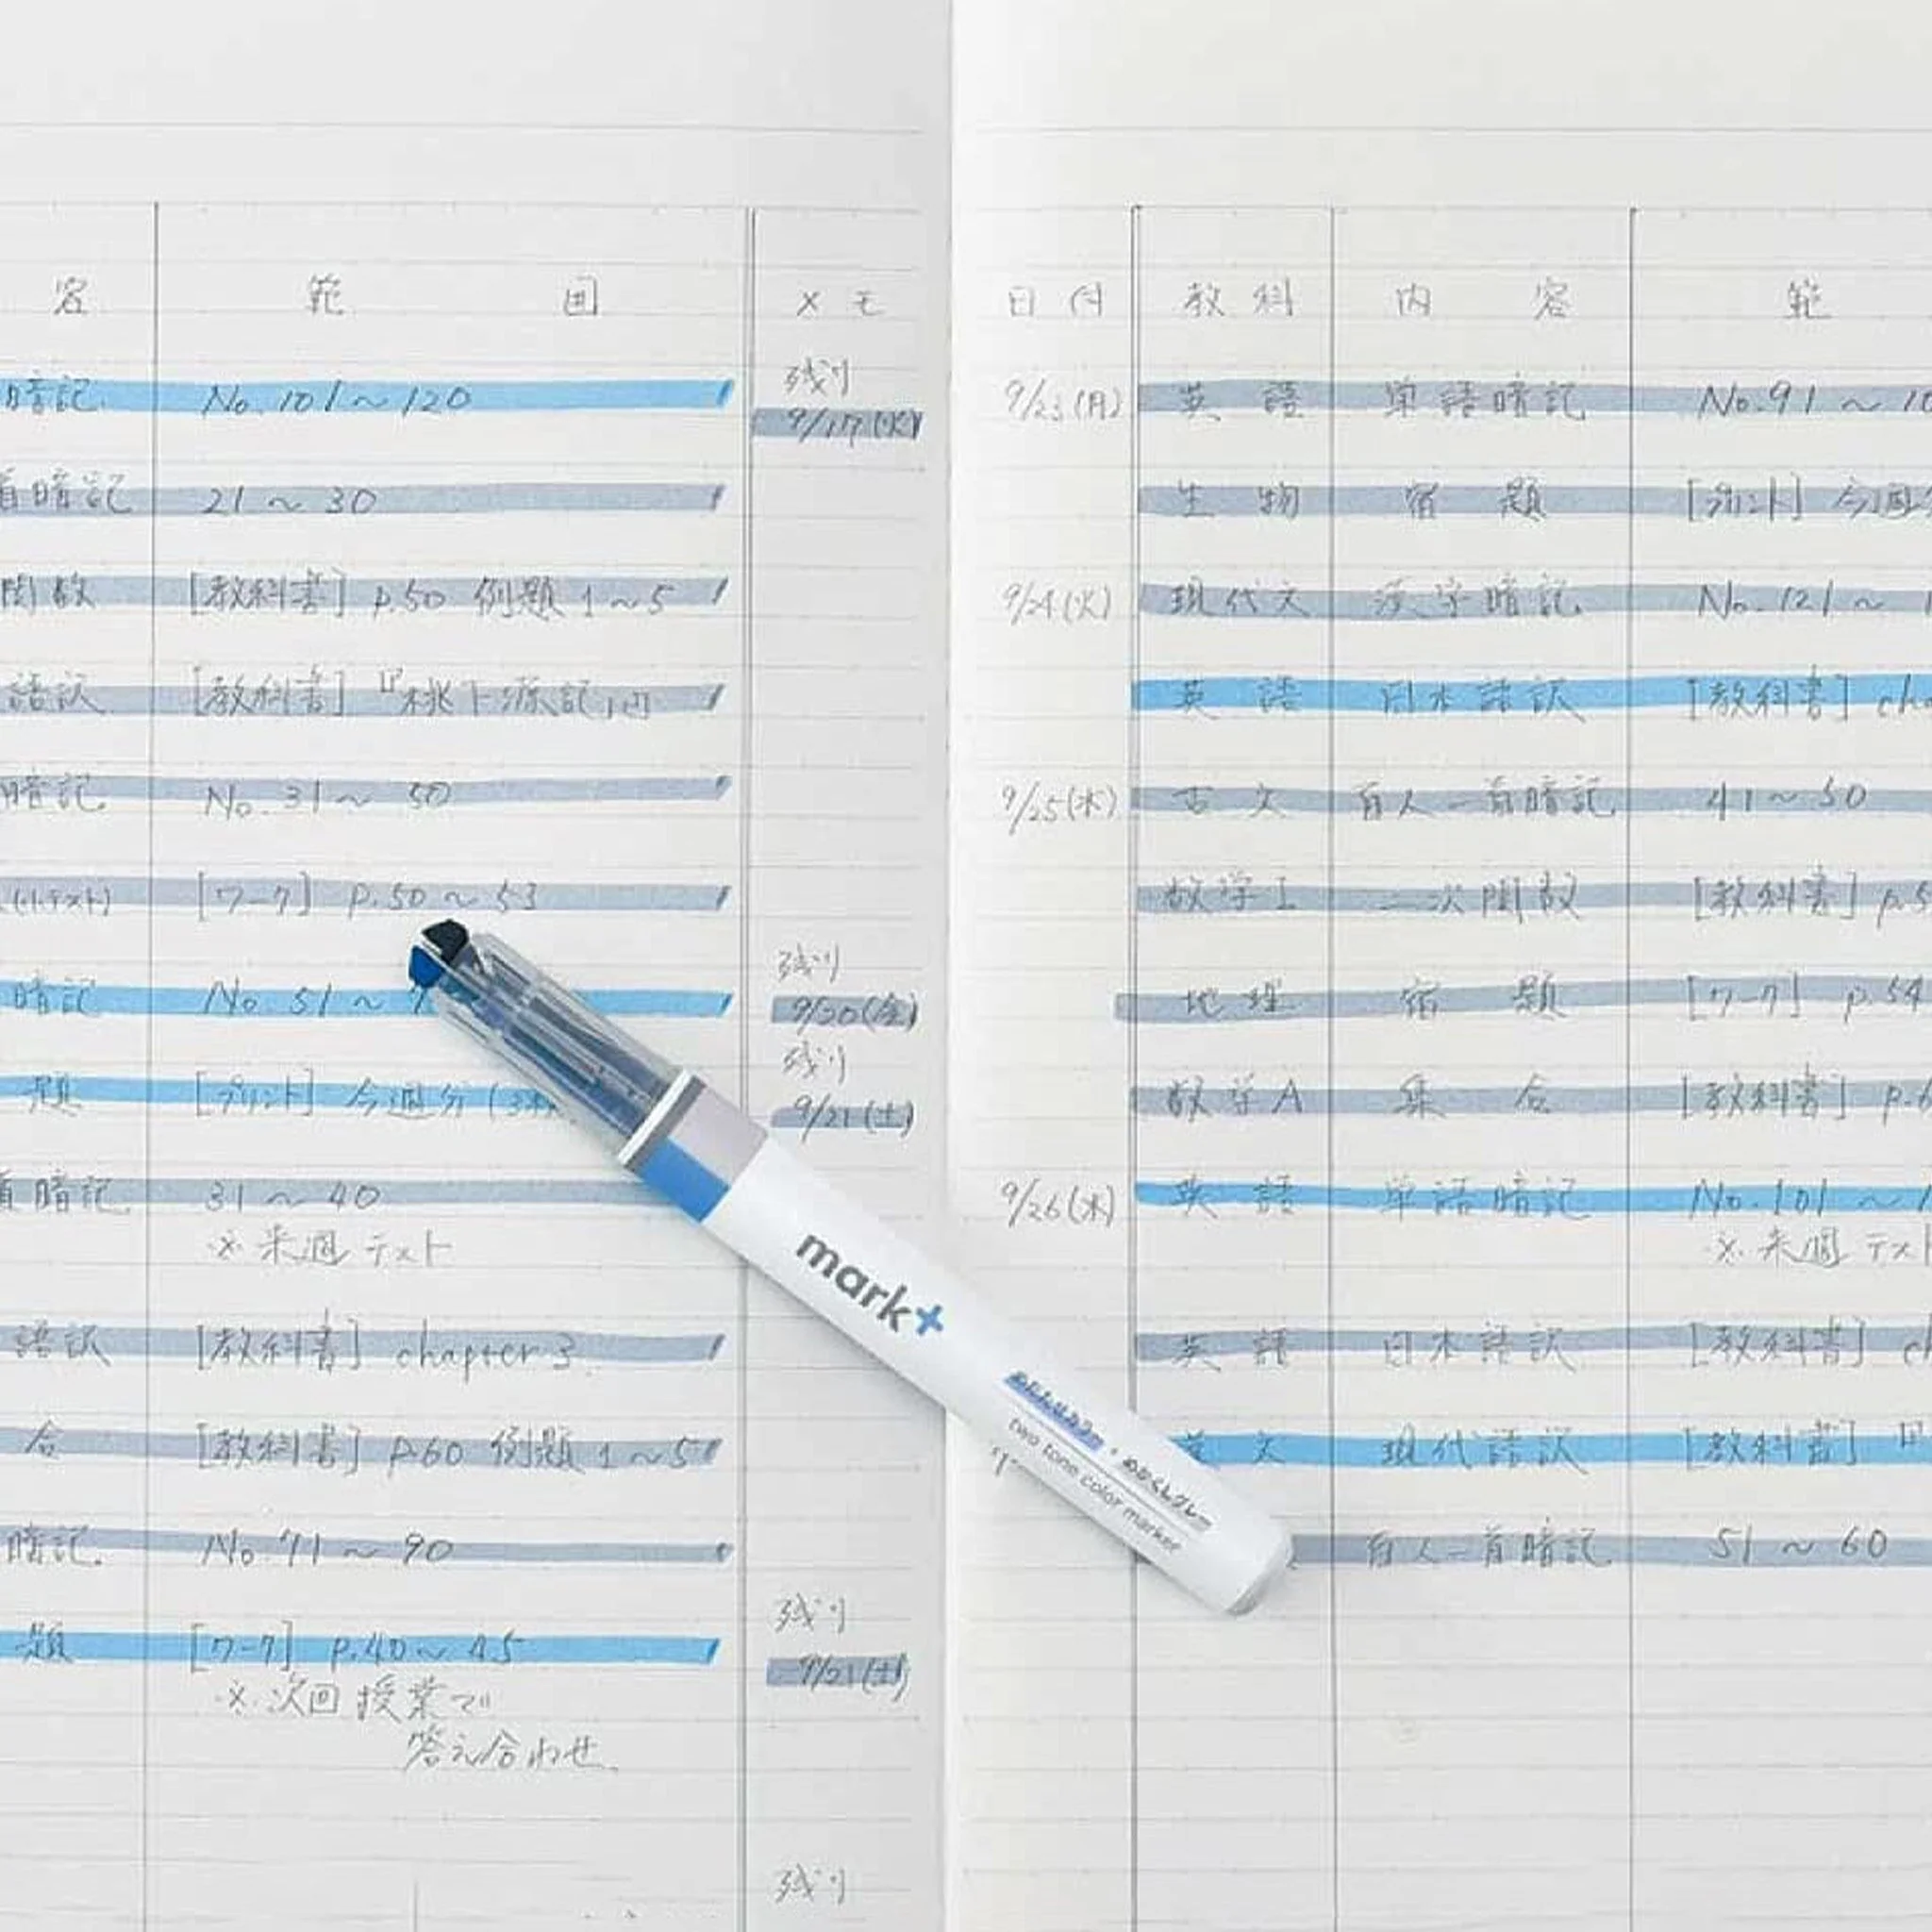 容 範 囲 メモ
暗記 No. 101 ~ 120 残り
9/17(火)
首暗記 21 ~ 30
関数 [教科書] p.50 例題 1 ~ 5
語訳 [教科書] 『桃下源記』
暗記 No. 31 ~ 50
(小テスト) [ワーク] p.50 ~ 53
残り
暗記 No. 51 ~ 9/20(金)
残り
題 [プリント] 今週分 9/21(土)
首暗記 31 ~ 40
※来週テスト
語訳 [教科書] chapter 3
合 [教科書] p.60 例題 1 ~ 5
暗記 No. 71 ~ 90
残り
題 [ワーク] p.40 ~ 45 9/21(土)
※次回授業で
答え合わせ
残り
日付 教科 内容 範
9/23(月) 英語 単語暗記 No.91 ~
生物 宿題 [プリント] 今週
9/24(火) 現代文 漢字暗記 No. 121 ~
英語 日本語訳 [教科書]
9/25(水) 古文 百人一首暗記 41 ~ 50
数学I 二次関数 [教科書]
地理 宿題 [ワーク] p.54
数学A 集合 [教科書]
9/26(木) 英語 単語暗記 No. 101 ~
※来週テスト
英語 日本語訳 [教科書]
文 現代語訳 [教科書]
百人一首暗記 51 ~ 60
mark+
めだくしグレー
two tone color marker